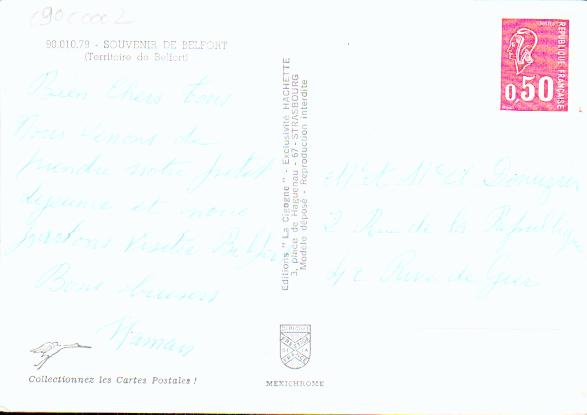 90.010.79 - SOUVENIR DE BELFORT
(Territoire de Belfort)
Bien Chers tous
Nous venons de
prendre notre petit
déjeuner et nous
partons visiter Belfort
Bons baisers
Maman
Collectionnez les Cartes Postales !
Editions " La Cigogne " - Exclusivité HACHETTE
3, place de Haguenau - 67 - STRASBOURG
Modèle déposé - Reproduction interdite
MEXICHROME
REPUBLIQUE FRANÇAISE
0,50
Mr et Me A
2 Rue de la République
42 Rive de Gier